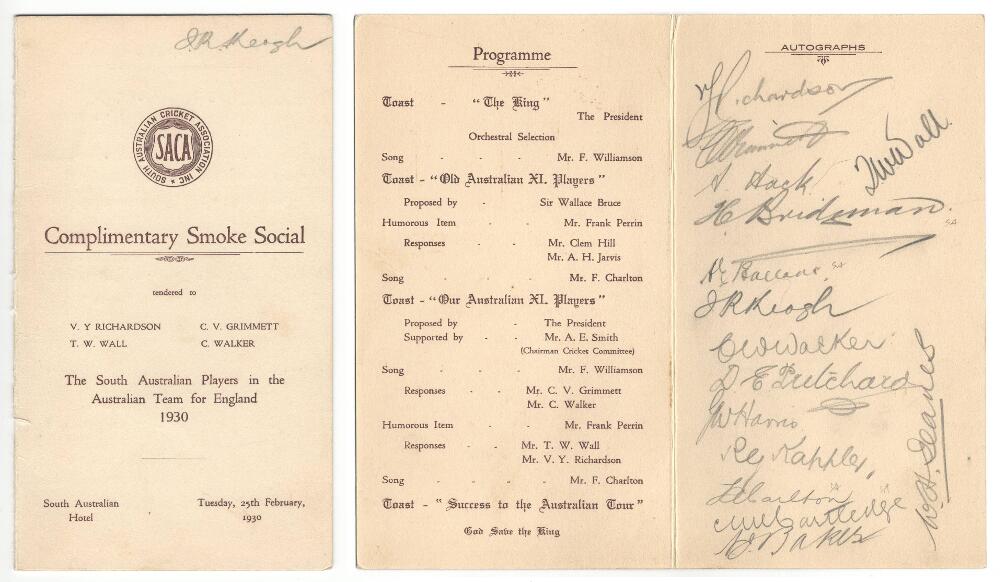 J.R. Keogh
SOUTH AUSTRALIAN CRICKET ASSOCIATION INC
SACA
Complimentary Smoke Social
tendered to
V. Y RICHARDSON C. V. GRIMMETT
T. W. WALL C. WALKER
The South Australian Players in the
Australian Team for England
1930
South Australian Tuesday, 25th February,
Hotel 1930
Programme
Toast - "The King"
The President
Orchestral Selection
Song - - - - Mr. F. Williamson
Toast - "Old Australian XI. Players"
Proposed by - Sir Wallace Bruce
Humorous Item - Mr. Frank Perrin
Responses - - Mr. Clem Hill
Mr. A. H. Jarvis
Song - - - - Mr. F. Charlton
Toast - "Our Australian XI. Players"
Proposed by - The President
Supported by - Mr. A. E. Smith
(Chairman Cricket Committee)
Song - - - - Mr. F. Williamson
Responses - - Mr. C. V. Grimmett
Mr. C. Walker
Humorous Item - Mr. Frank Perrin
Responses - - Mr. T. W. Wall
Mr. V. Y. Richardson
Song - - - - Mr. F. Charlton
Toast - "Success to the Australian Tour"
God Save the King
AUTOGRAPHS
Richardson
Grimmett
TW Wall.
A. Hack
H. Bridgman.
JR Keogh
CW Walker
D E Pritchard
GW Harris
Reg Kappler,
Carlton
Gartledge
Baker
W.H. Jeanes